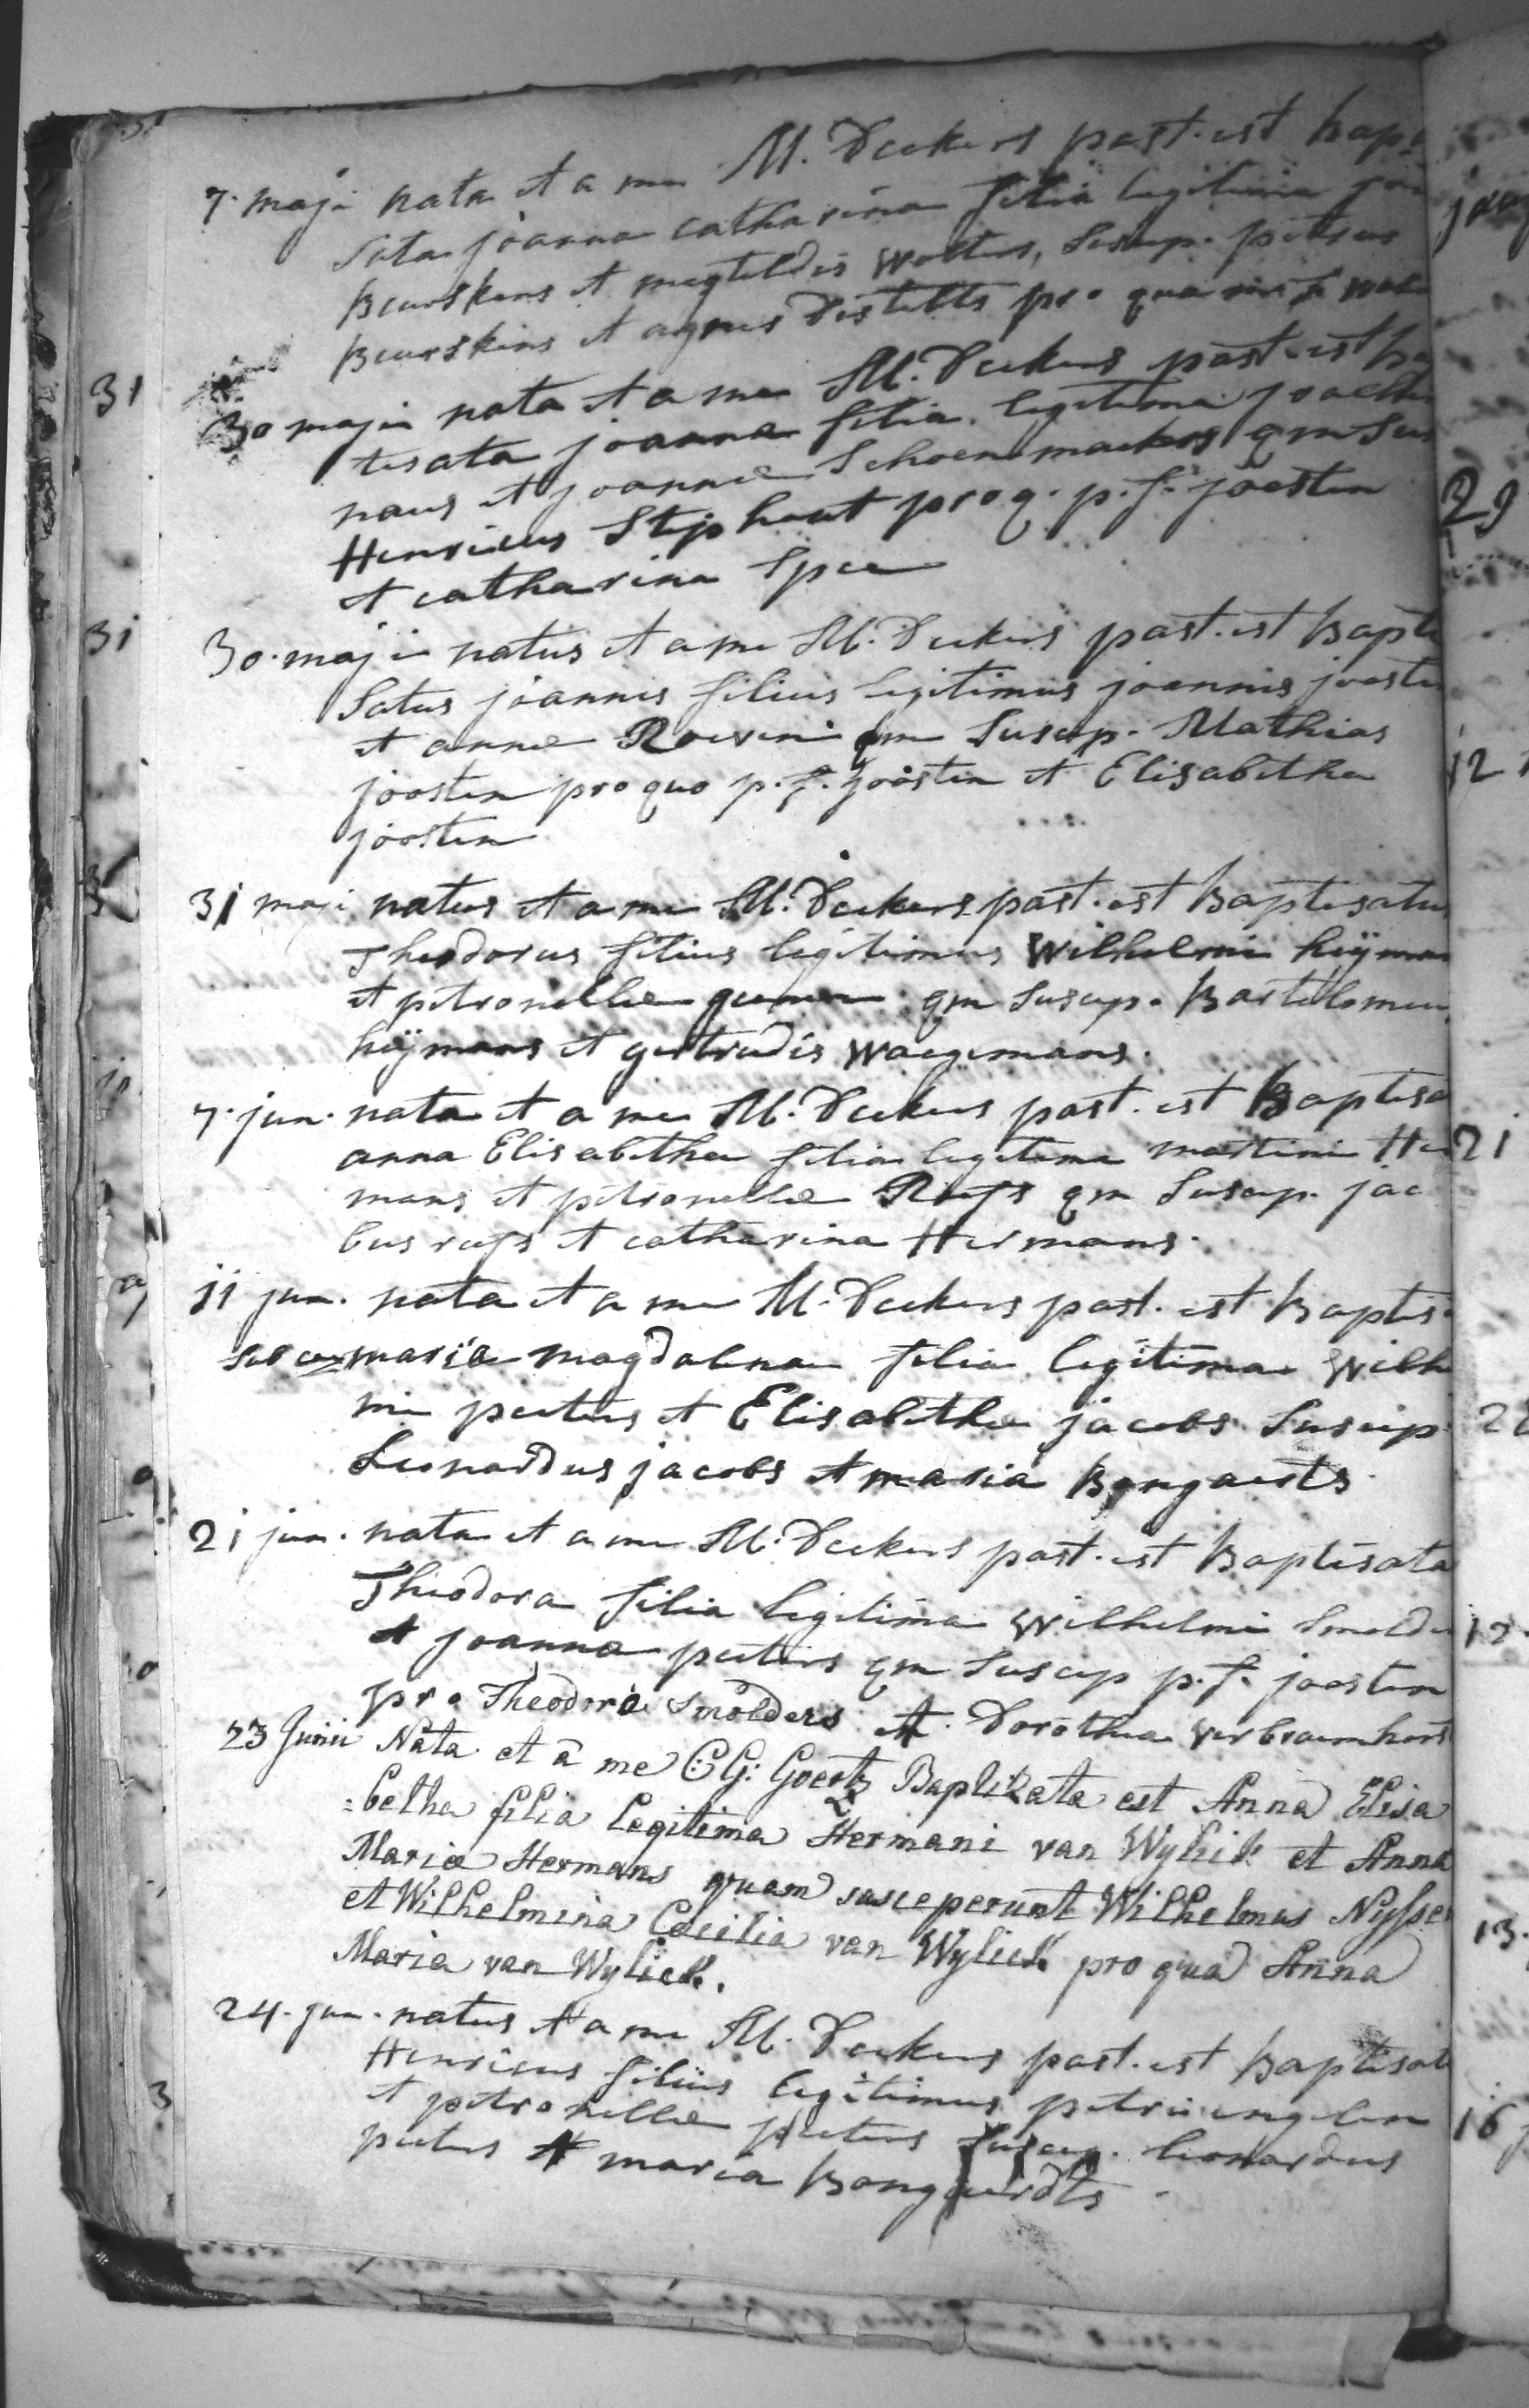 7. maji nata et a me M. Deckers past. est bap
sata joanna catharina filia legitima
Beurskens et megteldis wolters, Suscep. petrus
Beurskens et agnes Distelts pro qua
31
30 maji nata et a me M. Deckers past. est ba
tisata joanna filia legitima
naus et joannæ Schoenmaekers qm Sus
Henricus Stijphout pro q. p. f. joosten
et catharina Spee
31
30. maji natus et a me M. Deckers past. est Bapti
Satus joannis filius legitimus joannis jooste
et annæ Roeven qm Suscep. Mathias
joosten pro quo p. f. joosten et Elisabetha
joosten
31 maji natus et a me M. Deckers past. est Baptisatus
Theodorus filius legitimus Wilhelmi heijman
et petronellæ qm Suscep. Bartolomeu
heijmans et gertrudis waegemans.
7. jun. nata et a me M. Deckers past. est Baptisa
anna Elisabetha filia legitima martini Her
mans et petronellæ Riefs qm Suscep. jac
bus riefs et catharina Hermans.
11 jun. nata et a me M. Deckers past. est Baptis
maria magdalena filia legitima Wilh
mi peeters et Elisabethæ jacobs Suscep
Leonardus jacobs et maria Bongaerts
21 jun. nata et a me M. Deckers past. est Baptisata
Theodora filia legitima Wilhelmi Smolde
et joanna peeters qm Suscep p. f. joosten
pro Theodora Smolders et Dorothea
23 Junii Nata et â me C: G: Goertz Baptizata est Anna Elisa
=betha filia Legitima Hermani van Wylick et Anna
Mariæ Hermans quam susceperunt Wilhelmus Nysse
et Wilhelmina Cæcilia van Wylick pro qua Anna
Maria van Wylick.
24. jun. natus et a me M. Deckers past. est Baptisat
Henricus filius legitimus petri engelen
et petronellæ peeters Suscep. leonardus
peeters et maria Bongaerdts